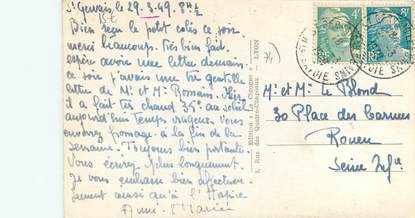 St Gervais le 29.3.49. 8h½
Bien reçu le petit colis ce soir
merci beaucoup. Très bien fait.
espère avoir une lettre demain
ce soir j'avais une très gentille
lettre de Mr et Me Romain. Hier
il a fait très chaud 35° au soleil
aujourd'hui Temps orageux. Vous
enverrez fromage à la fin de la
semaine. Toujours bien portante.
Vous écrirez plus longuement.
Je vous embrasse bien affectueu-
sement ainsi qu'à l'Hospice
Edition : Cigogne
5, Rue des Quatre-Chapeaux - LYON
74
Mr et Me Le Blond
30 Place des Carmes
Rouen
Seine Infre